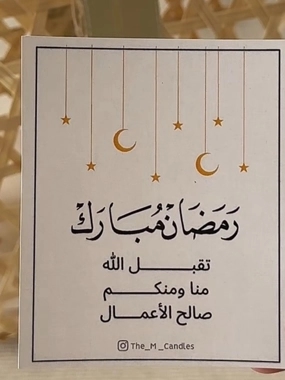 رَمَضَان مُبَارَك
تقبـــل الله
منا ومنكـــم
صالح الأعمـــال
The_M_Candles